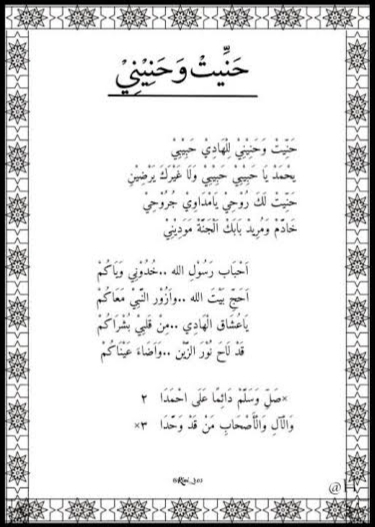 حَنِّيتْ وَحَنِيْنِيْ
حَنِّيتْ وَحَنِيْنِيْ لِلْهَادِيْ حَبِيْبِيْ
يحْمَدْ يَا حَبِيْبِيْ حَبِيْبِيْ وَلَا غَيْرَكَ يَرْضِيْنِ
حَنِّيتْ لَكَ رُوْحِيْ يَامْدَاوِيْ جُرُوْحِيْ
خَادِّمْ وَمُرِيدْ بَابَكْ اَلْجَنَّةْ مَودِيْنِيْ
اَحْبَاب رَسُوْلِ الله ..خُدُوْنِي وَيَاكُمْ
اَحَجِّ بَيْتَ الله ..وَاَزُوْر النَّبِيْ مَعَاكُمْ
يَاعُشَاق الْهَادِي ..مِنْ قَلْبِيْ بُشْرَاكُمْ
قَدْ لَاحَ نُوْرَ الزَّيْن ..وَاَضَاءَ عَيْنَاكُمْ
×صَلِّ وَسَلِّمْ دَائِمًا عَلَى احْمَدَا ٢
وَالْآلِ وَالْأَصْحَابِ مَنْ قَدْ وَحَّدَا ٣×